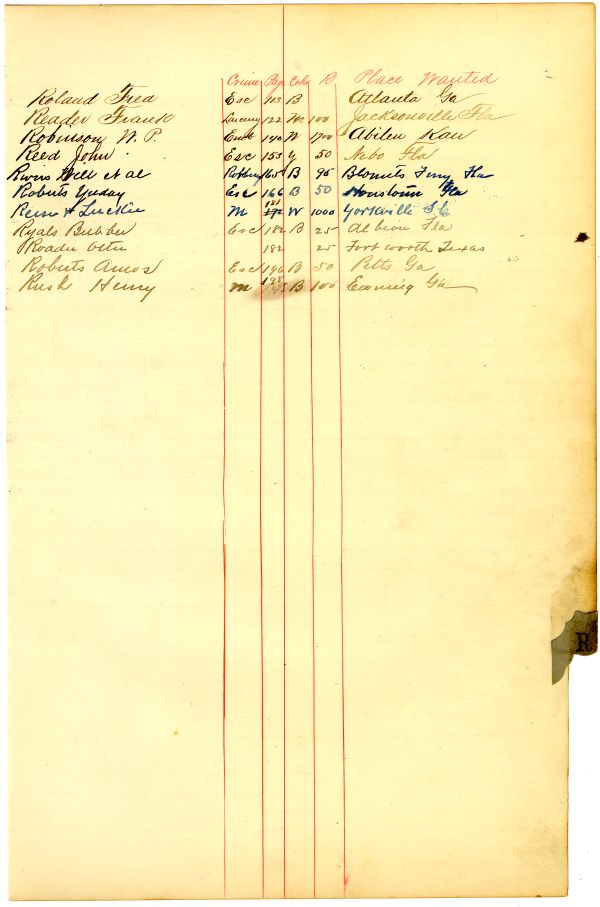 Crime Page Color R Place Wanted
Roland Fred Esc 113 B Atlanta Ga
Reader Frank Larceny 122 W 100 Jacksonville Fla
Robinson W. P. Emb 140 W 1700 Abilen Kan
Reed John Esc 153 y 50 Nebo Fla
Will et al Robbery 165 B 95 Blounts Ferry Fla
Roberts Esc 166 B 50 Fla
& Luckie M 181 W 1000 Yorkville S.C.
Ryals Bubber Esc 182 B 25 Albion Fla
Roader 182 25 Fort worth Texas
Roberts Amos Esc 196 B 50 Pitts Ga
Rush Henry M 198 B 100 Ga
R